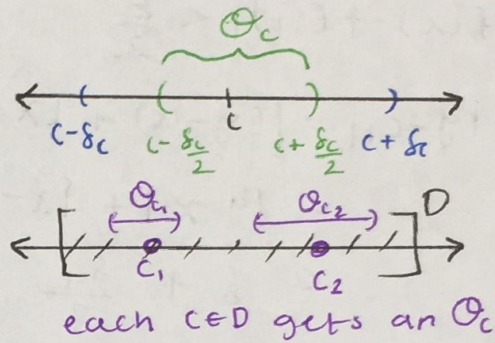 𝒪_c
c
c-δ_c c-δ_c/2 c+δ_c/2 c+δ_c
𝒪_c₁ 𝒪_c₂ D
c₁ c₂
each c∈D gets an 𝒪_c